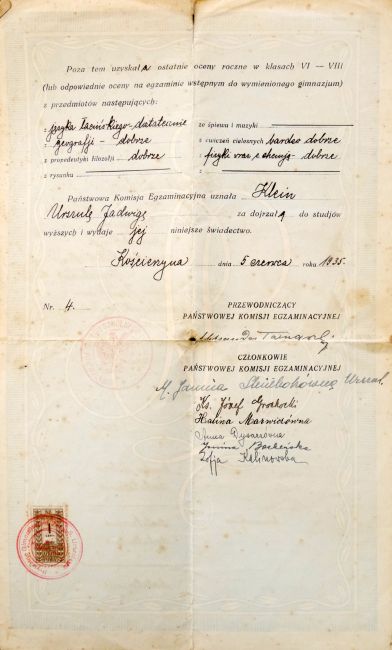 Poza tem uzyskała ostatnie oceny roczne w klasach VI — VIII
(lub odpowiednie oceny na egzaminie wstępnym do wymienionego gimnazjum)
z przedmiotów następujących:
z języka łacińskiego - dostatecznie ze śpiewu i muzyki
z geografji - dobrze z ćwiczeń cielesnych bardzo dobrze
z propedeutyki filozofji dobrze z fizyki wraz z chemją - dobrze
z rysunku z
Państwowa Komisja Egzaminacyjna uznała Klein
Urszulę Jadwigę za dojrzałą do studjów
wyższych i wydaje jej niniejsze świadectwo.
Kościerzyna dnia 5 czerwca roku 1935.
Nr. 4.
PRZEWODNICZĄCY
PAŃSTWOWEJ KOMISJI EGZAMINACYJNEJ
CZŁONKOWIE
PAŃSTWOWEJ KOMISJI EGZAMINACYJNEJ
M. Janina
Ks. Józef Grochocki
Halina Marwiczówna
Anna
Janina
Zofja Kalinowska
1